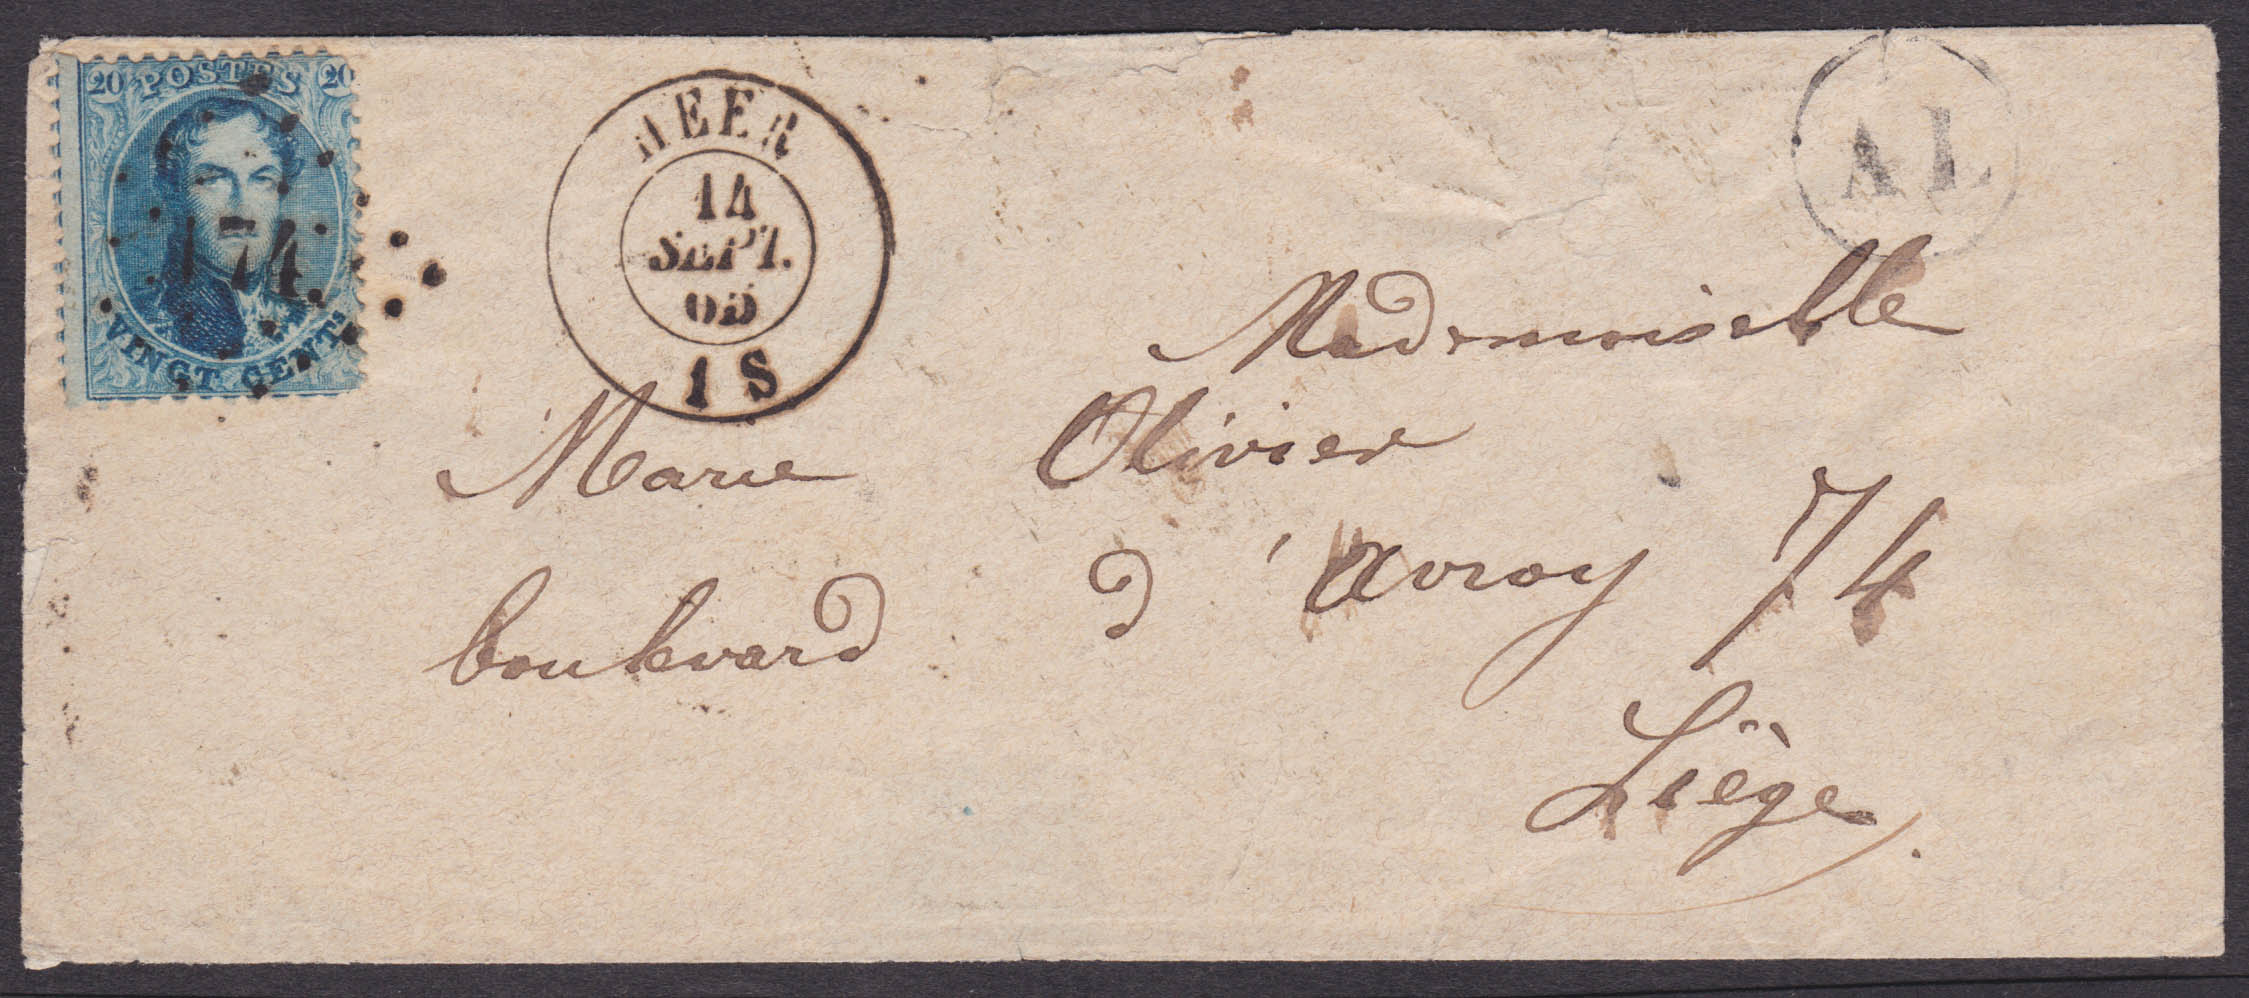 20 POSTES 20
174
VINGT CENTS
HEER
14
SEPT.
65
1 S
A L
Mademoiselle
Marie Olivier
boulevard d'Avroy 74
Liège